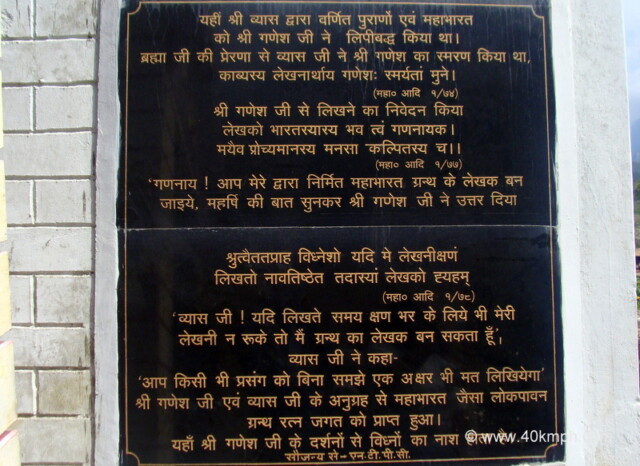 यहीं श्री व्यास द्वारा वर्णित पुराणों एवं महाभारत
को श्री गणेश जी ने लिपीबद्ध किया था।
ब्रह्मा जी की प्रेरणा से व्यास जी ने श्री गणेश का स्मरण किया था,
काव्यस्य लेखनार्थाय गणेशः स्मर्यतां मुने।
(महा० आदि १/७४)
श्री गणेश जी से लिखने का निवेदन किया
लेखको भारतस्यास्य भव त्वं गणनायक।
मयैव प्रोच्यमानस्य मनसा कल्पितस्य च।।
(महा० आदि १/७७)
'गणनाय ! आप मेरे द्वारा निर्मित महाभारत ग्रन्थ के लेखक बन
जाइये, महर्षि की बात सुनकर श्री गणेश जी ने उत्तर दिया
श्रुत्वैततप्राह विध्नेशो यदि मे लेखनीक्षणं
लिखतो नावतिष्ठेत तदास्यां लेखको ह्यहम्
(महा० आदि १/७८)
'व्यास जी ! यदि लिखते समय क्षण भर के लिये भी मेरी
लेखनी न रूके तो मैं ग्रन्थ का लेखक बन सकता हूँ',
व्यास जी ने कहा-
'आप किसी भी प्रसंग को बिना समझे एक अक्षर भी मत लिखियेगा'
श्री गणेश जी एवं व्यास जी के अनुग्रह से महाभारत जैसा लोकपावन
ग्रन्थ रत्न जगत को प्राप्त हुआ।
यहाँ श्री गणेश जी के दर्शनों से विध्नों का नाश होता है
सौजन्य से-एन.टी.पी.सी.